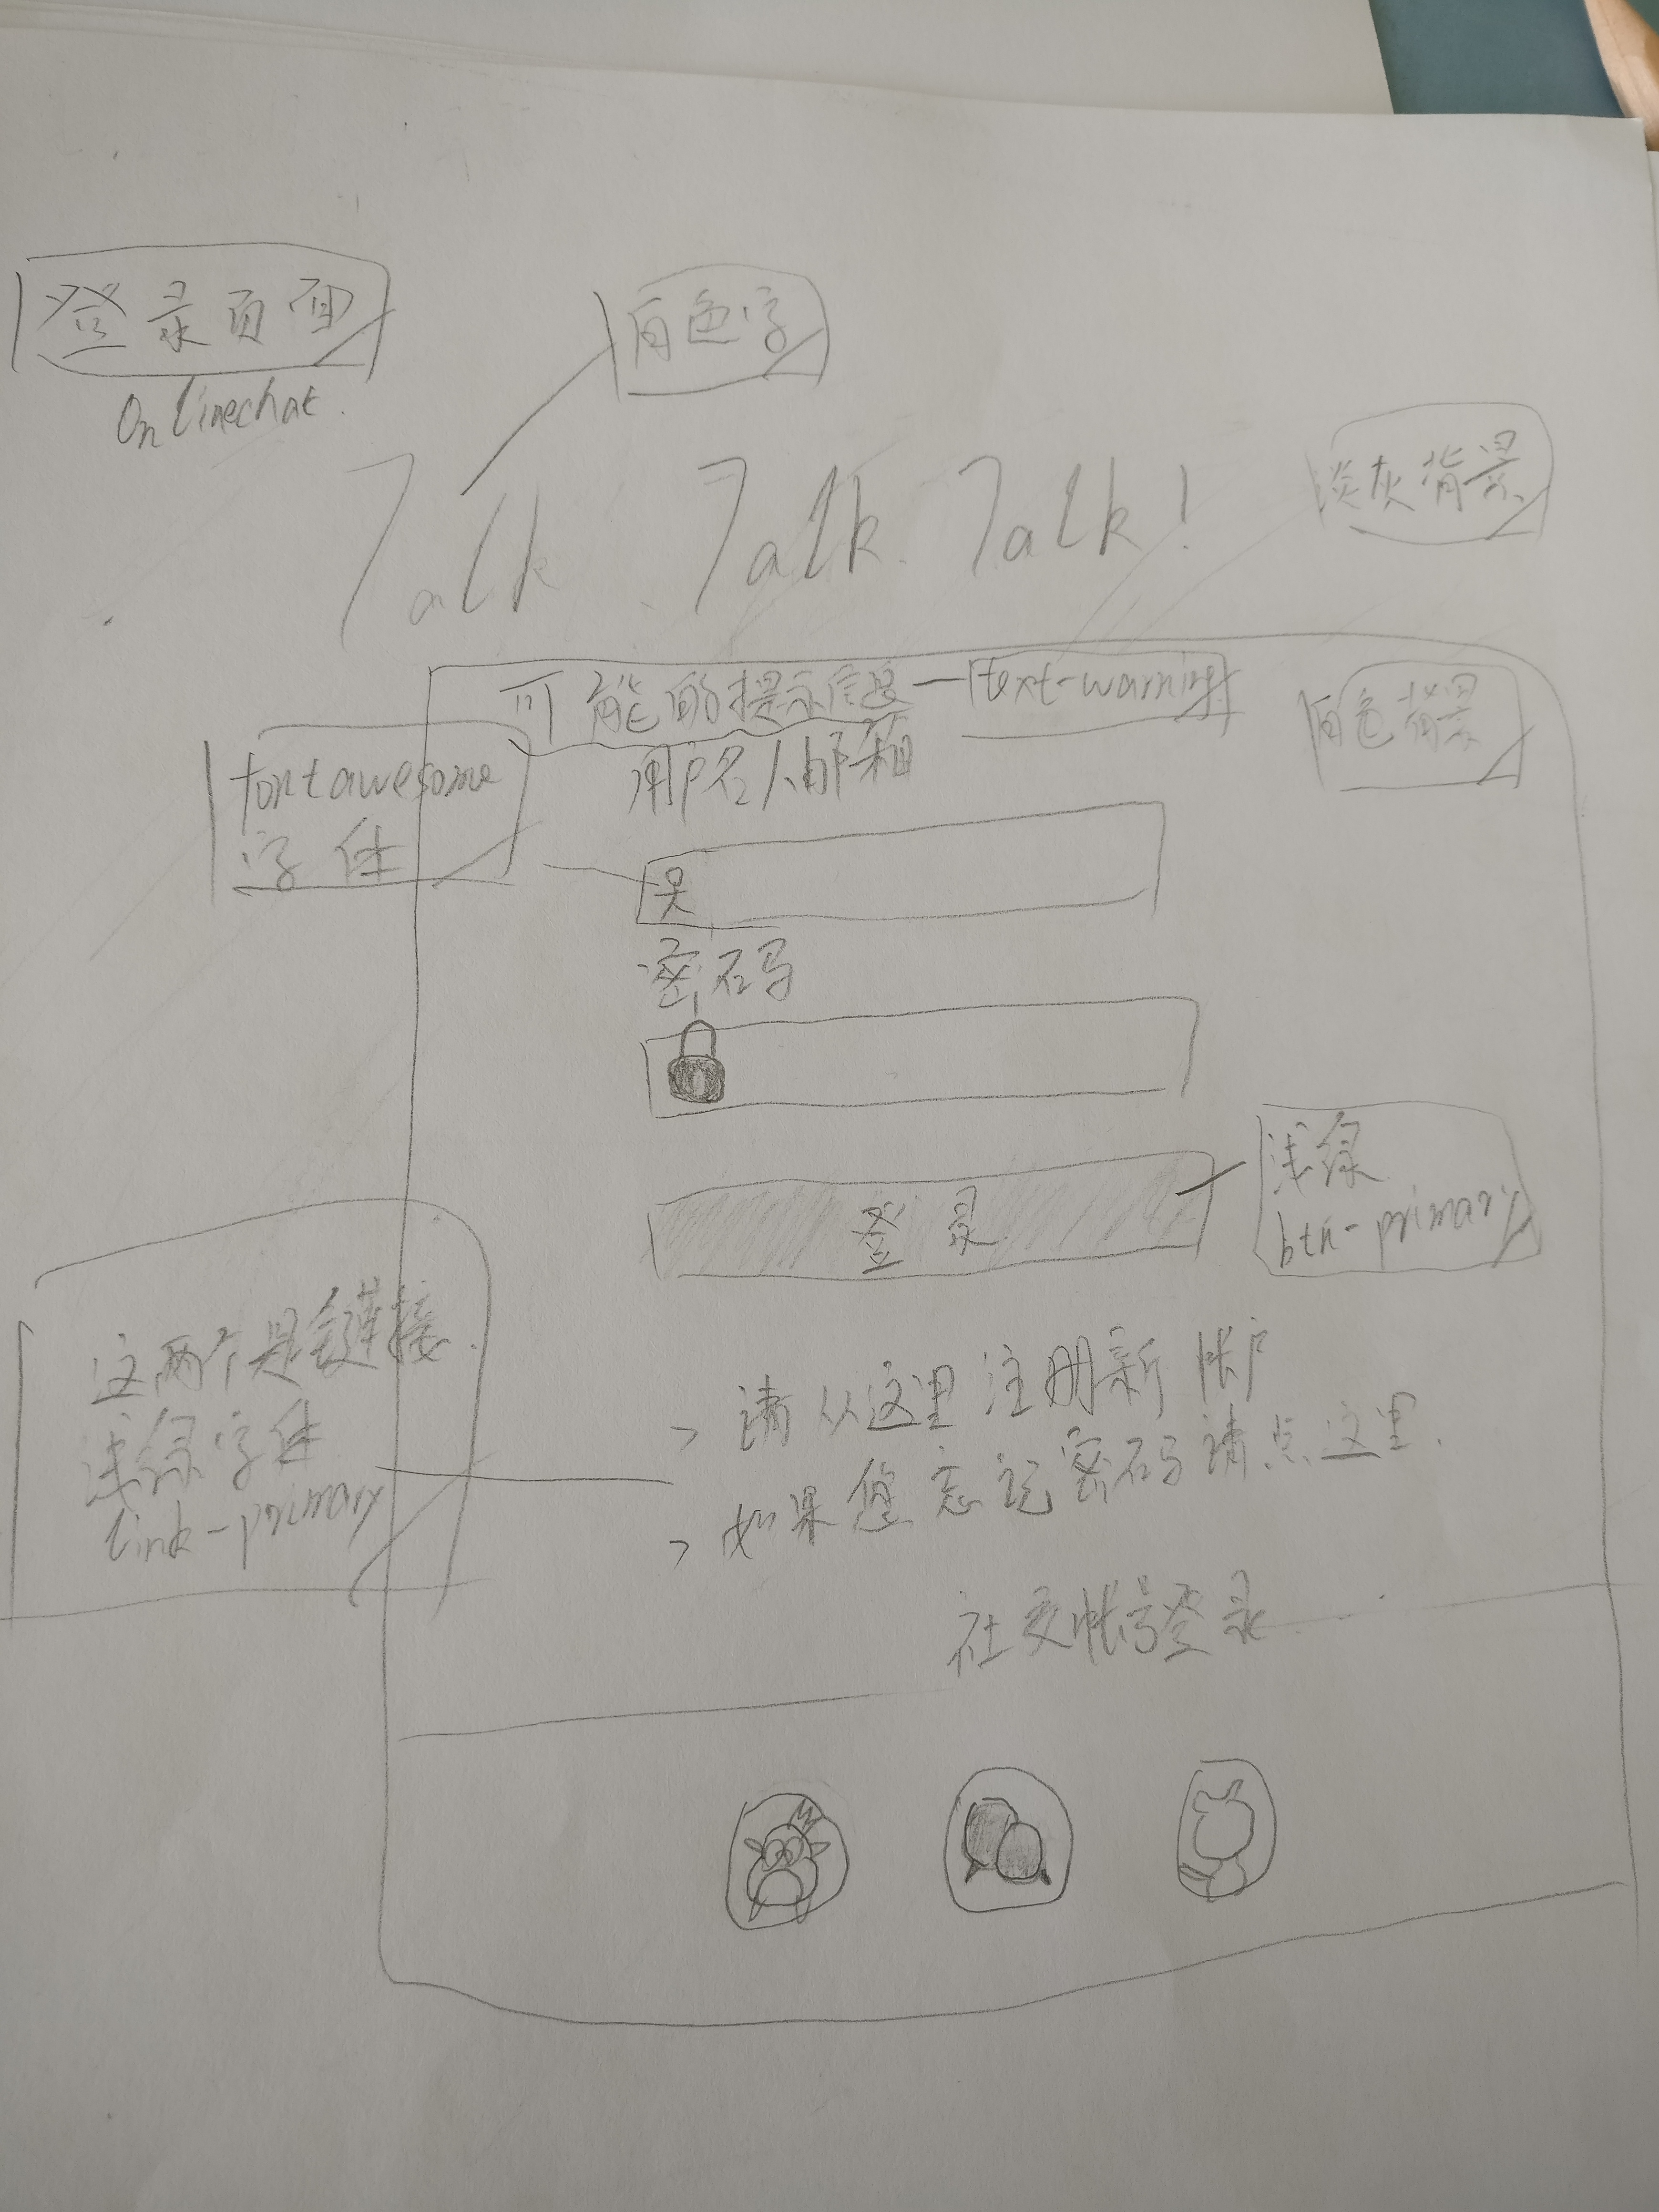 登录页面
Onlinechat.
白色字
Talk. Talk. Talk!
淡灰背景
可能的提示信息
text-warning
白色背景
fontawesome
字体
用户名/邮箱
密码
登录
浅绿
btn-primary
这两个是链接.
浅绿字体
link-primary
> 请从这里注册新帐户
> 如果您忘记密码请点这里.
社交帐号登录